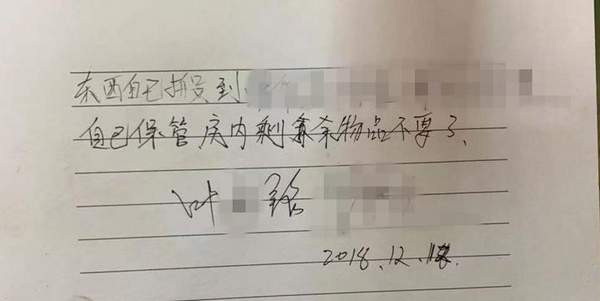 东西自已搬到
自己保管房内剩余物品不要了、
叶 铭
2018.12.18.